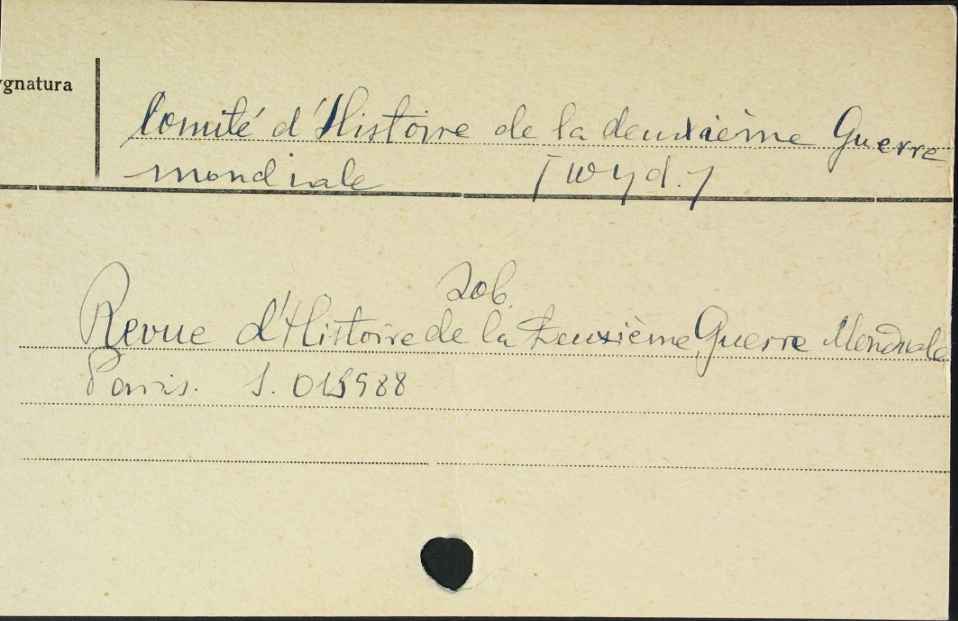 ygnatura
Comité d'Histoire de la deuxième Guerre
mondiale [wyd.]
zob.
Revue d'Histoire de la Deuxième Guerre Mondiale
Paris. S. 015988